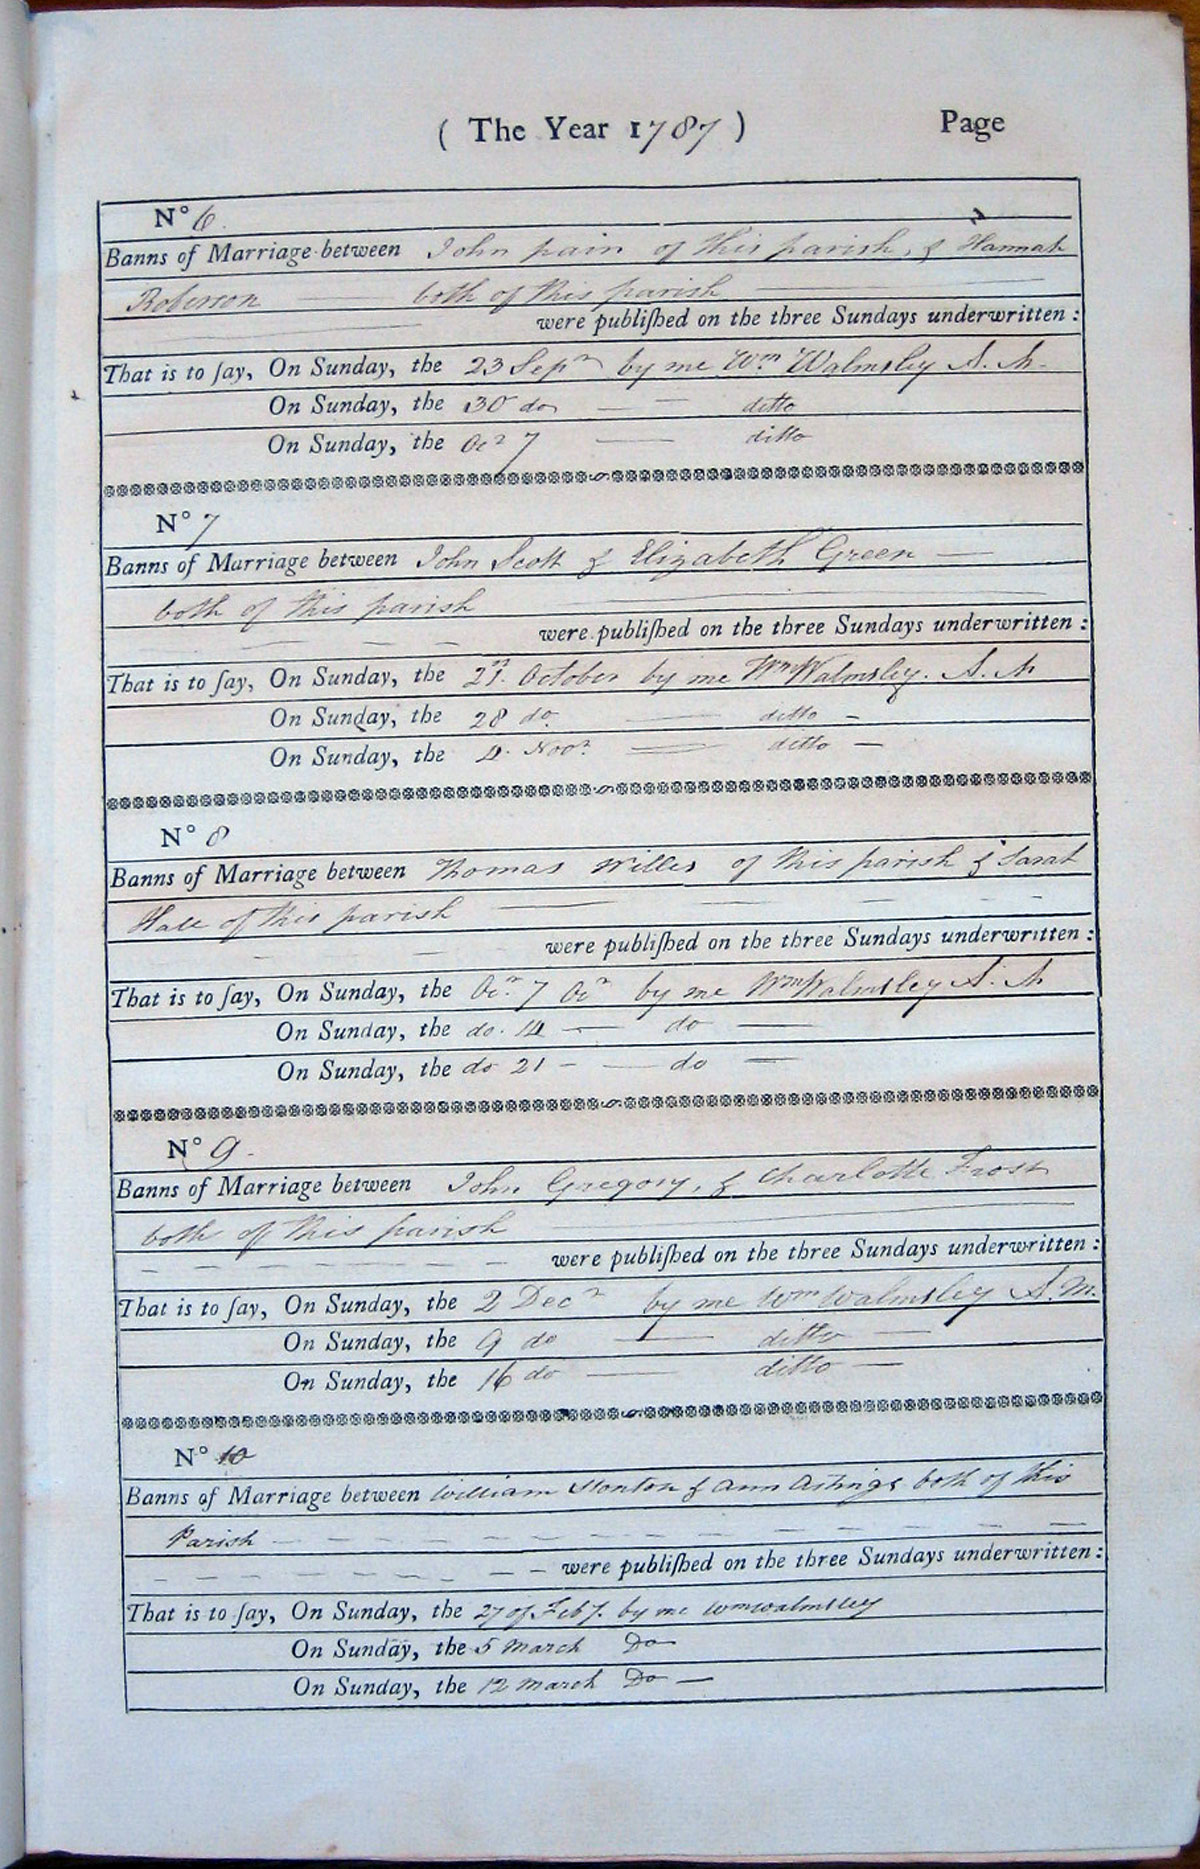 ( The Year 1787 ) Page
N° 6.
Banns of Marriage between John pain of this parish, & Hannah
Roberson both of this parish
were publiſhed on the three Sundays underwritten :
That is to ſay, On Sunday, the 23 Sepr by me Wm Walmsley A. M.
On Sunday, the 30 do ditto
On Sunday, the Ocr 7 ditto
N° 7
Banns of Marriage between John Scott & Elizabeth Green
both of this parish
were publiſhed on the three Sundays underwritten :
That is to ſay, On Sunday, the 21 October by me Wm Walmsley. A. M
On Sunday, the 28 do ditto
On Sunday, the 4 Novr ditto
N° 8
Banns of Marriage between Thomas Willis of this parish & Sarah
Hall of this parish
were publiſhed on the three Sundays underwritten :
That is to ſay, On Sunday, the Ocr 7 Ocr by me Wm Walmsley A. M
On Sunday, the do. 14 do
On Sunday, the do 21 do
N° 9.
Banns of Marriage between John Gregory, & Charlotte Frost
both of this parish
were publiſhed on the three Sundays underwritten :
That is to ſay, On Sunday, the 2 Decr by me Wm Walmsley A. M.
On Sunday, the 9 do ditto
On Sunday, the 16 do ditto
N° 10
Banns of Marriage between William & Ann both of this
Parish
were publiſhed on the three Sundays underwritten :
That is to ſay, On Sunday, the 27 of Feby. by me Wm Walmsley
On Sunday, the 5 March Do
On Sunday, the 12 March Do